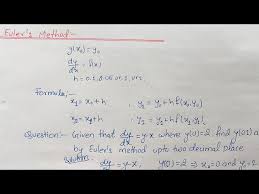 Euler's Method:-
y(x₀) = y₀
dy/dx = f(x)
h = 0.1, 0.05 or
Formula:-
x₁ = x₀+h , y₁ = y₀ + h f(x₀,y₀)
x₂ = x₁+h , y₂ = y₁ + h f(x₁,y₁)
Question:- Given that dy/dx = y-x where y(0)=2 find y(0.1) a
by Euler's method upto two decimal place
Solution:- dy/dx = y-x, y(0)=2 ⇒ x₀=0 and y₀=2